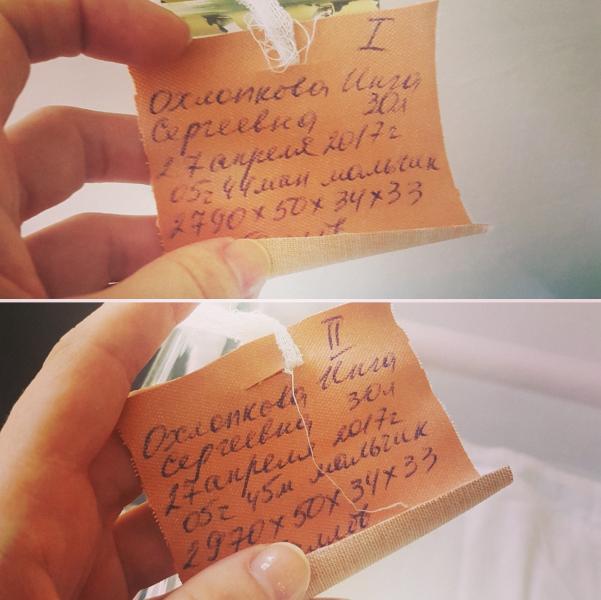 I
Охлопкова Инга
Сергеевна 30л
27 апреля 2017г
05ч 44мин мальчик
2790 x 50 x 34 x 33
II
Охлопкова Инга
Сергеевна 30л
27 апреля 2017г
05ч 45м мальчик
2970 x 50 x 34 x 33